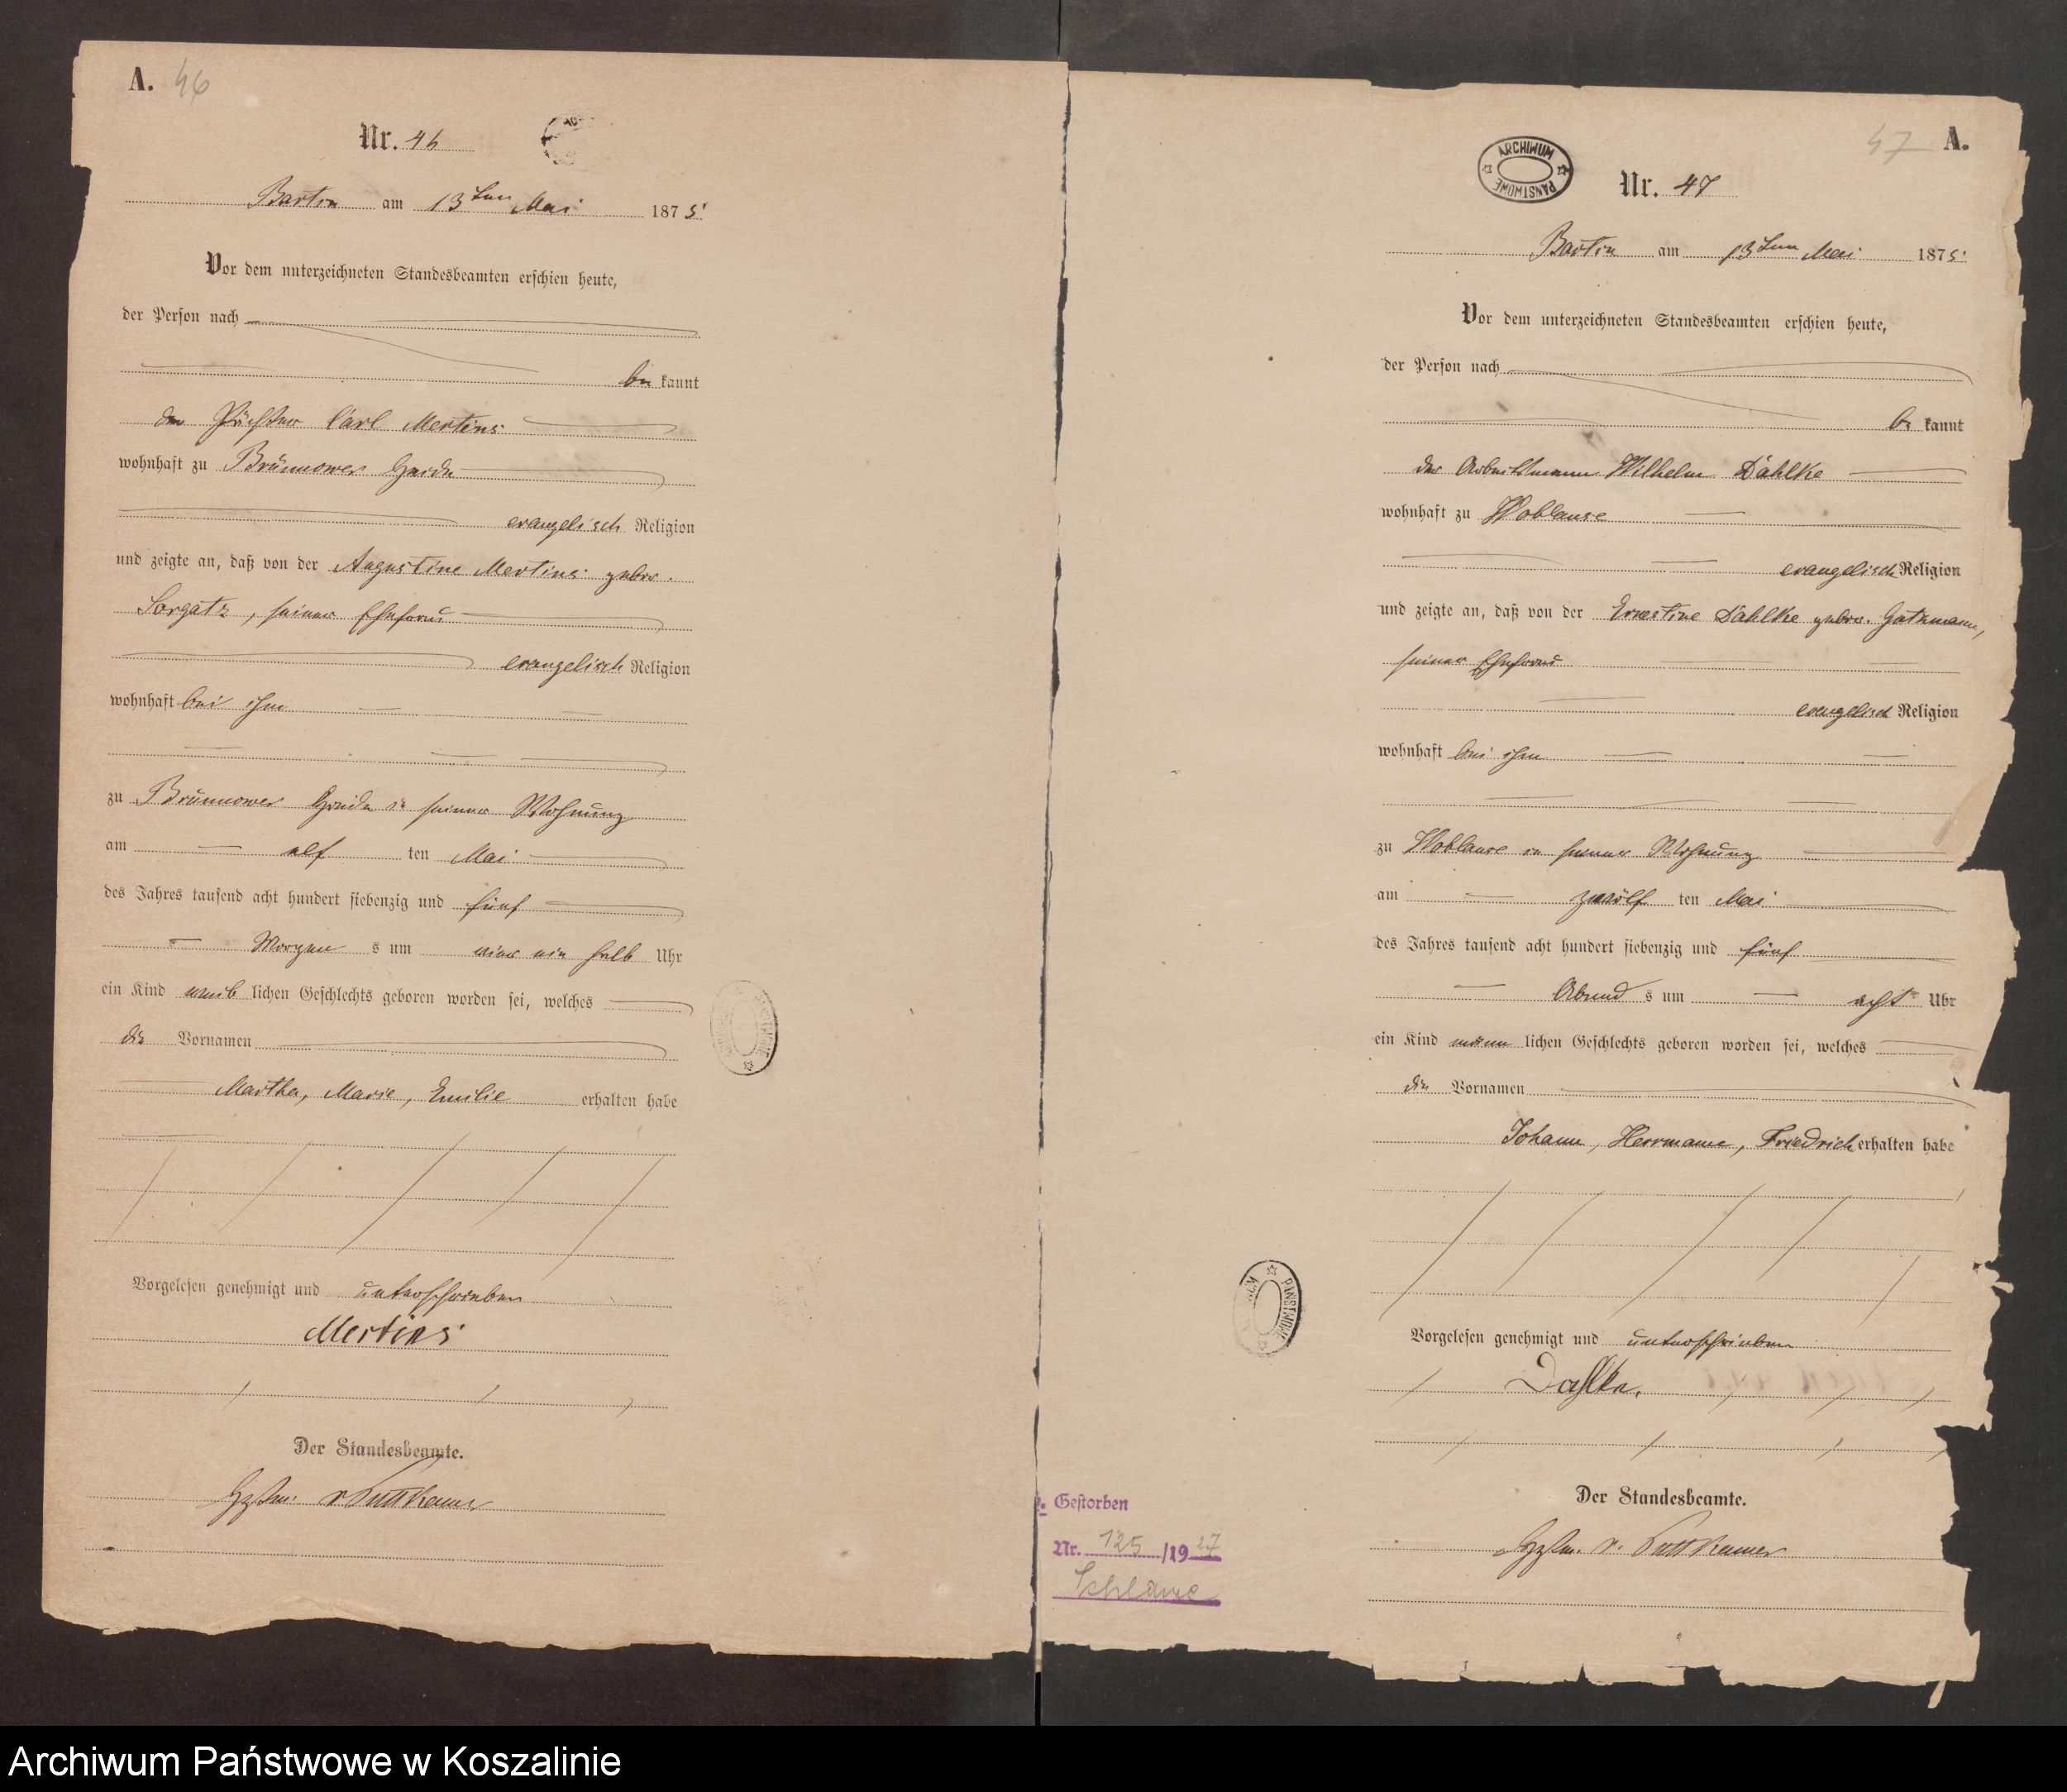 A. 46
Nr. 46
Bartin am 13ten Mai 1875.
Vor dem unterzeichneten Standesbeamten erschien heute,
der Person nach
be kannt
der Pächter Carl Mertins
wohnhaft zu Brünnower Haide
evangelisch Religion
und zeigte an, daß von der Augustine Mertins gebor.
Sorgatz, seiner Ehefrau
evangelisch Religion
wohnhaft bei ihm
zu Brünnower Haide in seiner Wohnung
am elf ten Mai
des Jahres tausend acht hundert siebenzig und fünf
Morgen s um ein halb Uhr
ein Kind weib lichen Geschlechts geboren worden sei, welches
die Vornamen
Martha, Marie, Emilie erhalten habe
Vorgelesen genehmigt und unterschrieben
Mertins
Der Standesbeamte.
v Puttkamer
A. 47
ARCHIWUM PAŃSTWOWE
Nr. 47
Bartin am 13ten Mai 1875.
Vor dem unterzeichneten Standesbeamten erschien heute,
der Person nach
be kannt
der Arbeitsmann Wilhelm Dahlke
wohnhaft zu Woblanse
evangelisch Religion
und zeigte an, daß von der Ernestine Dahlke gebor. Gatzmann,
seiner Ehefrau
evangelisch Religion
wohnhaft bei ihm
zu Woblanse in seiner Wohnung
am zwölf ten Mai
des Jahres tausend acht hundert siebenzig und fünf
Abend s um acht Uhr
ein Kind männ lichen Geschlechts geboren worden sei, welches
die Vornamen
Johann, Herrmann, Friedrich erhalten habe
Vorgelesen genehmigt und unterschrieben
Dahlke.
Der Standesbeamte.
v. Puttkamer
Gestorben
Nr. 125 /1927
Schlawe
Archiwum Państwowe w Koszalinie